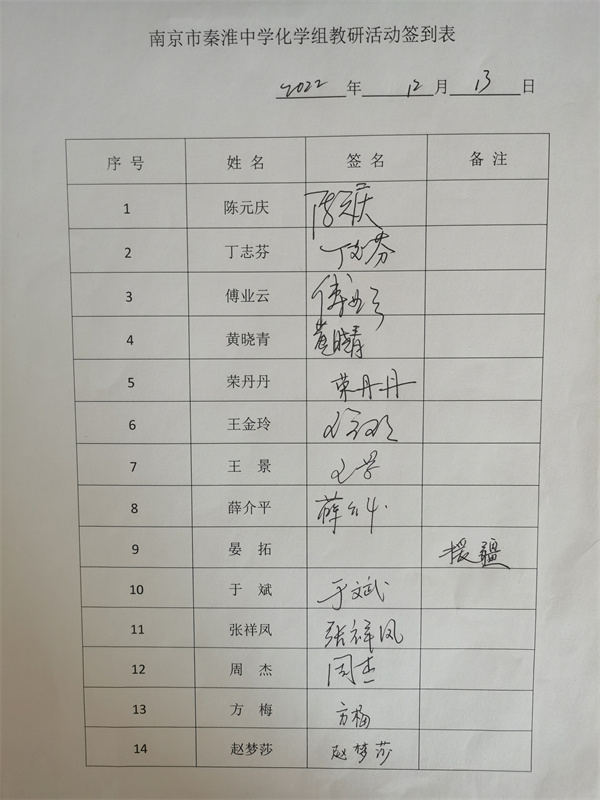 南京市秦淮中学化学组教研活动签到表
2022 年 12 月 13 日
序 号 姓 名 签 名 备 注
1 陈元庆 陈元庆
2 丁志芬 丁志芬
3 傅业云 傅业云
4 黄晓青 黄晓青
5 荣丹丹 荣丹丹
6 王金玲 王金玲
7 王 景 王景
8 薛介平 薛介平
9 晏 拓 援疆
10 于 斌 于斌
11 张祥凤 张祥凤
12 周 杰 周杰
13 方 梅 方梅
14 赵梦莎 赵梦莎